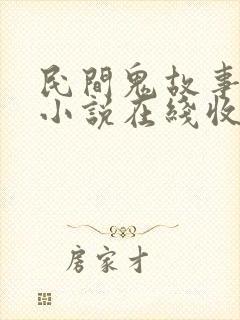 民間鬼故事
小說在綫收
房家才